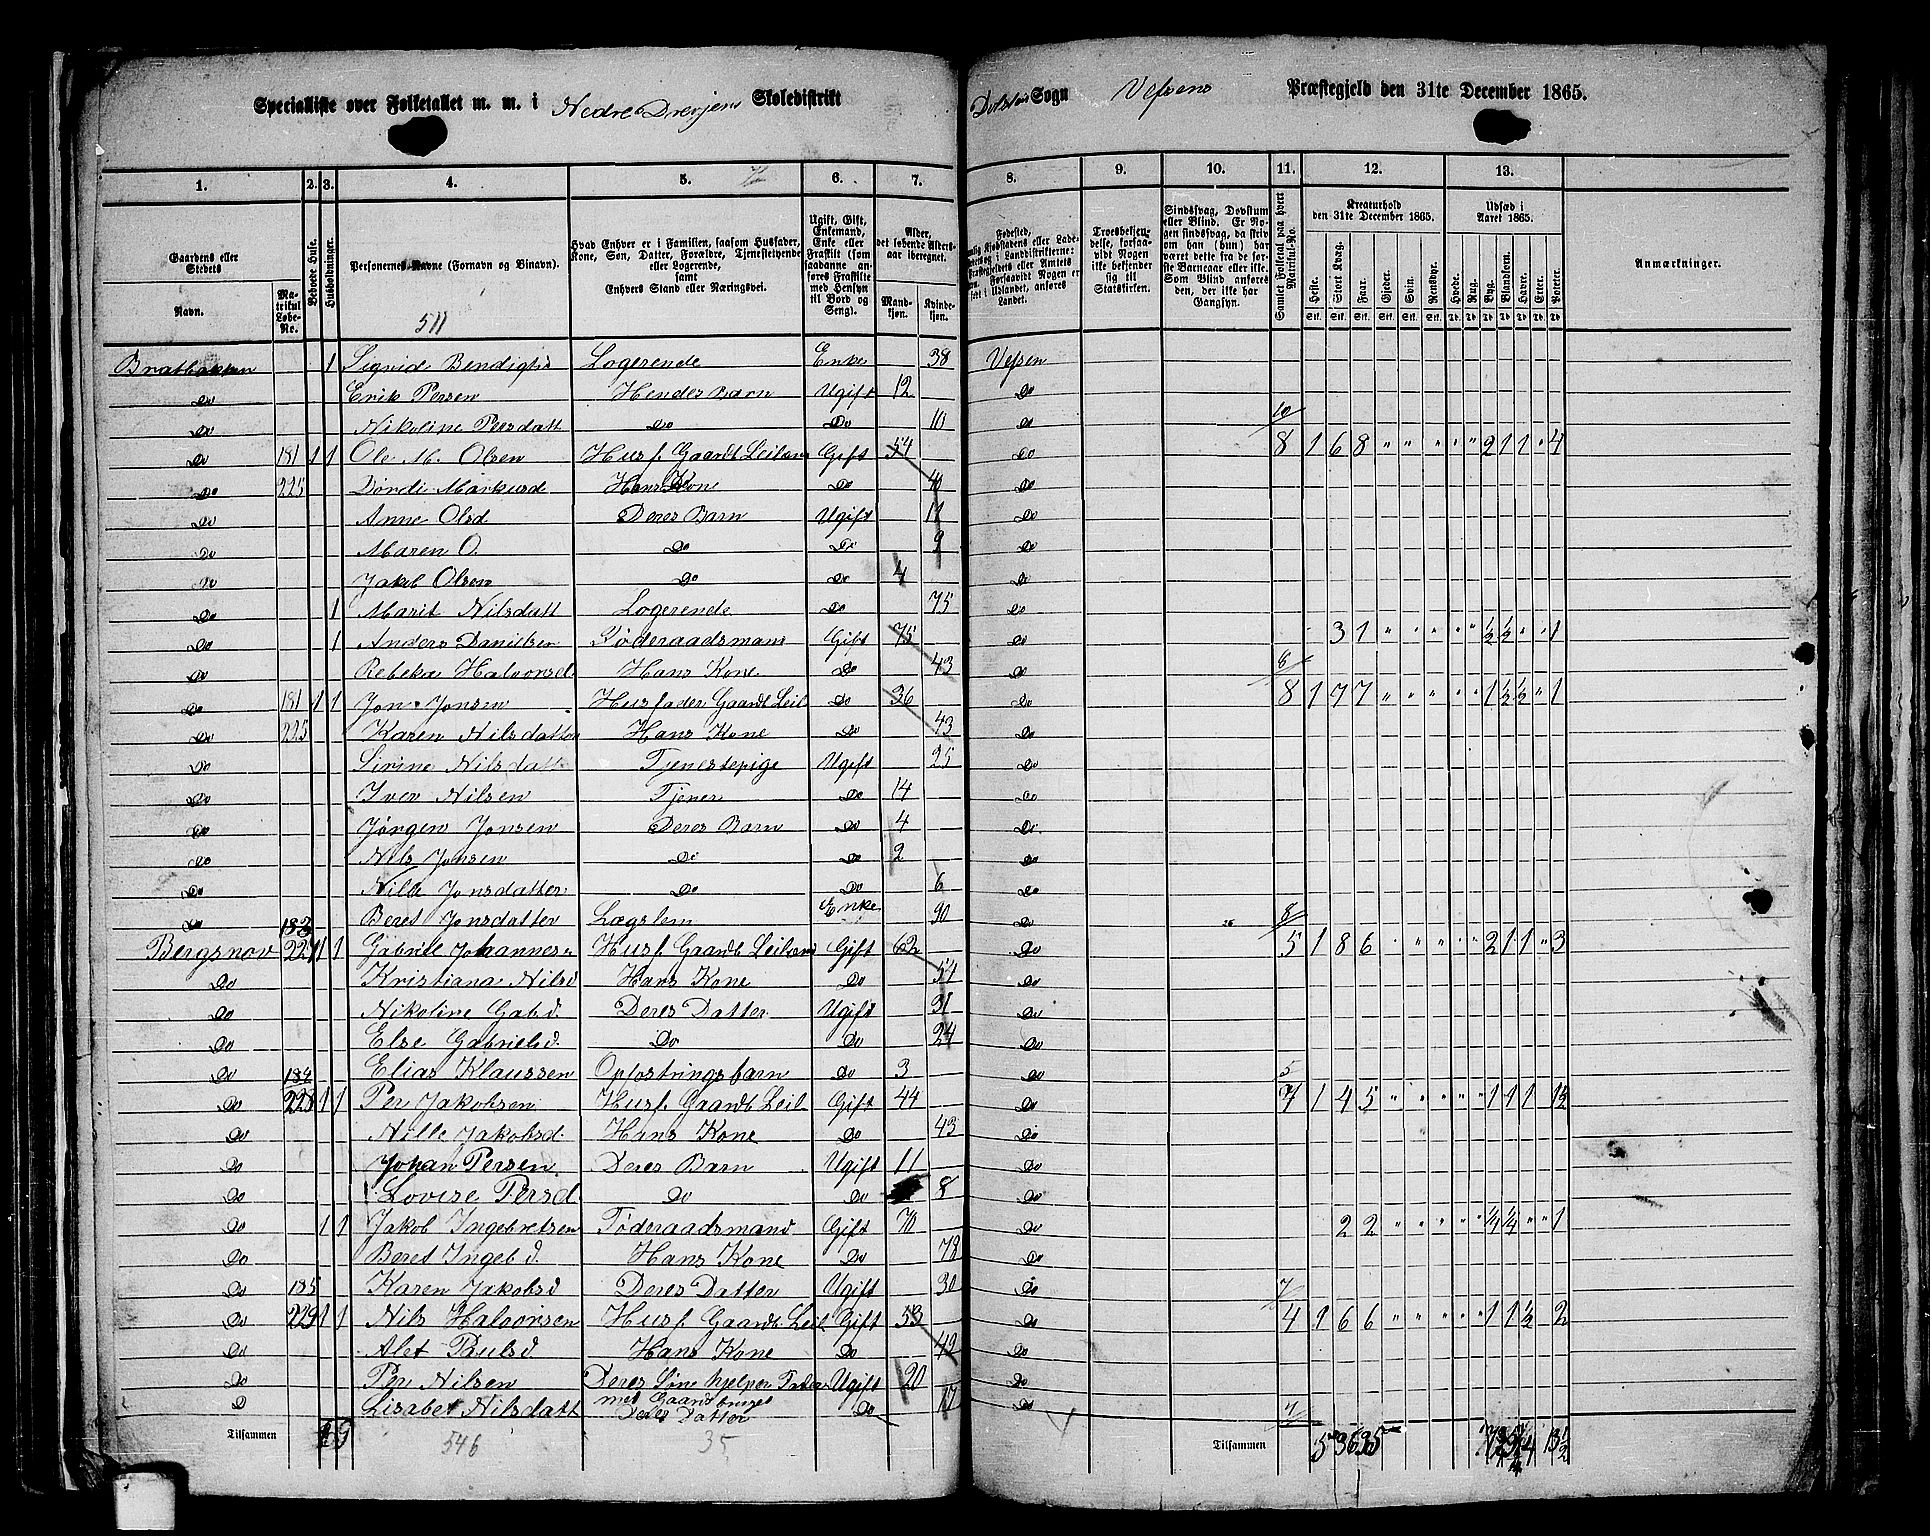 Specialliste over Folketallet m. m. i Nedre Drevjens Skoledistrikt Dolstad Sogn Vefsens Præstegjeld den 31te December 1865.
1. 2. 3. 4. 5. 6. 7. 8. 9. 10. 11. 12. 13.
Gaardens eller Stedets
Navn.
Matrikul Løbe-No.
Beboede Huse.
Husholdninger.
Personernes Navne (Fornavn og Binavn).
511
Hvad Enhver er i Familien, saasom Husfader, Kone, Søn, Datter, Forældre, Tjenestetyende eller Logerende, samt Enhvers Stand eller Næringsvei.
Ugift, Gift, Enkemand, Enke eller Fraskilt (som saadanne anføres Fraskilte med Hensyn til Bord og Seng).
Alder, det løbende Aldersaar iberegnet.
Mandkjøn.
Kvindekjøn.
Fødested,
Troesbekjendelse, forsaavidt Nogen ikke bekjender sig til Statskirken.
Sindssvag, Døvstum eller Blind. Er Nogen sindssvag, da skriv om han (hun) har været dette fra de første Barneaar eller ikke. Som Blind anføres den, der ikke har Gangsyn.
Samlet Folketal paa hvert Matrikul-No.
Kreaturhold den 31te December 1865.
Heste. Stort Kvæg. Faar. Gjeder. Svin. Rensdyr.
Udsæd i Aaret 1865.
Hvede. Rug. Byg. Blandkorn. Havre. Erter. Poteter.
Anmærkninger.
Bratbakken 1 Sigrid Bendigtsd Logerende Enke 38 Vefsen
Do Erik Persen Hendes Barn Ugift 12 Do
Do Nikoline Persdatt Do Do 10 Do 10
Do 181 1 1 Ole M. Olsen Husf Gaardb Leilænd Gift 54 Do 8 1 6 8 " " " " " 2 1 1 " 4
Do 225 Dordi Markusd Hans Kone Do 40 Do
Do Anne Olsd Deres Barn Ugift 11 Do
Do Maren O. Do Do 9 Do
Do Jakob Olsen Do Do 4 Do
Do 1 Marit Nilsdatt Logerende Do 75 Do
Do 1 Anders Danielsen Føderaadsmand Gift 75 Do 3 1 " " " " " ½ ½ " " 1
Do Rebeka Halvorsd Hans Kone Do 43 Do 8
Do 181 1 1 Jon Jonsen Husfader Gaardb Leil Do 36 Do 8 1 7 7 " " " " " 1 ½ ½ " 1
Do 225 Karen Nilsdatter Hans Kone Do 43 Do
Do Sirine Nilsdatt Tjenestepige Ugift 25 Do
Do Iver Nilsen Tjener Do 14 Do
Do Jørgen Jonsen Deres Barn Do 4 Do
Do Nils Jonsen Do Do 2 Do
Do Nille Jonsdatter Do Do 6 Do
Do Beret Jonsdatter Lægslem Enke 90 Do 8
183
Bergsnov 227 1 1 Gabriel Johannesn Husf Gaardb Leilænd Gift 62 Do 5 1 8 6 " " " " " 2 1 1 " 3
Do Kristiana Nilsd Hans Kone Do 54 Do
Do Nikoline Gabd. Deres Datter Ugift 31 Do
Do Else Gabrielsd. Do Do 24 Do
Do Elias Klaussen Opfostringsbarn Do 3 Do 5
184
Do 228 1 1 Per Jakobsen Husf. Gaardb Leil Gift 44 Do 7 1 4 5 " " " " " 1 1 1 1½
Do Nille Jakobsd. Hans Kone Do 43 Do
Do Johan Persen Deres Barn Ugift 11 Do
Do Lovise Persd Do Do 8 Do
Do 1 1 Jakob Ingebretsen Føderaadsmand Gift 70 Do 2 2 " " " " " ¼ ¼ " " 1
Do Beret Ingebd. Hans Kone Do 78 Do
Do 185 Karen Jakobsd Deres Datter Ugift 30 Do 7
Do 229 1 1 Nils Halvorsen Husf Gaardb Leil Gift 53 Do 4 1 6 6 " " " " " 1 1 ½ " 2
Do Alet Paulsd. Hans Kone Do 49 Do
Do Per Nilsen Deres Søn hjelper Fader med Gaardsbruget Ugift 20 Do
Lisabet Nilsdatt Deres Datter Do 17 Do 7
Tilsammen 546 35 Tilsammen 5 36 35 13½